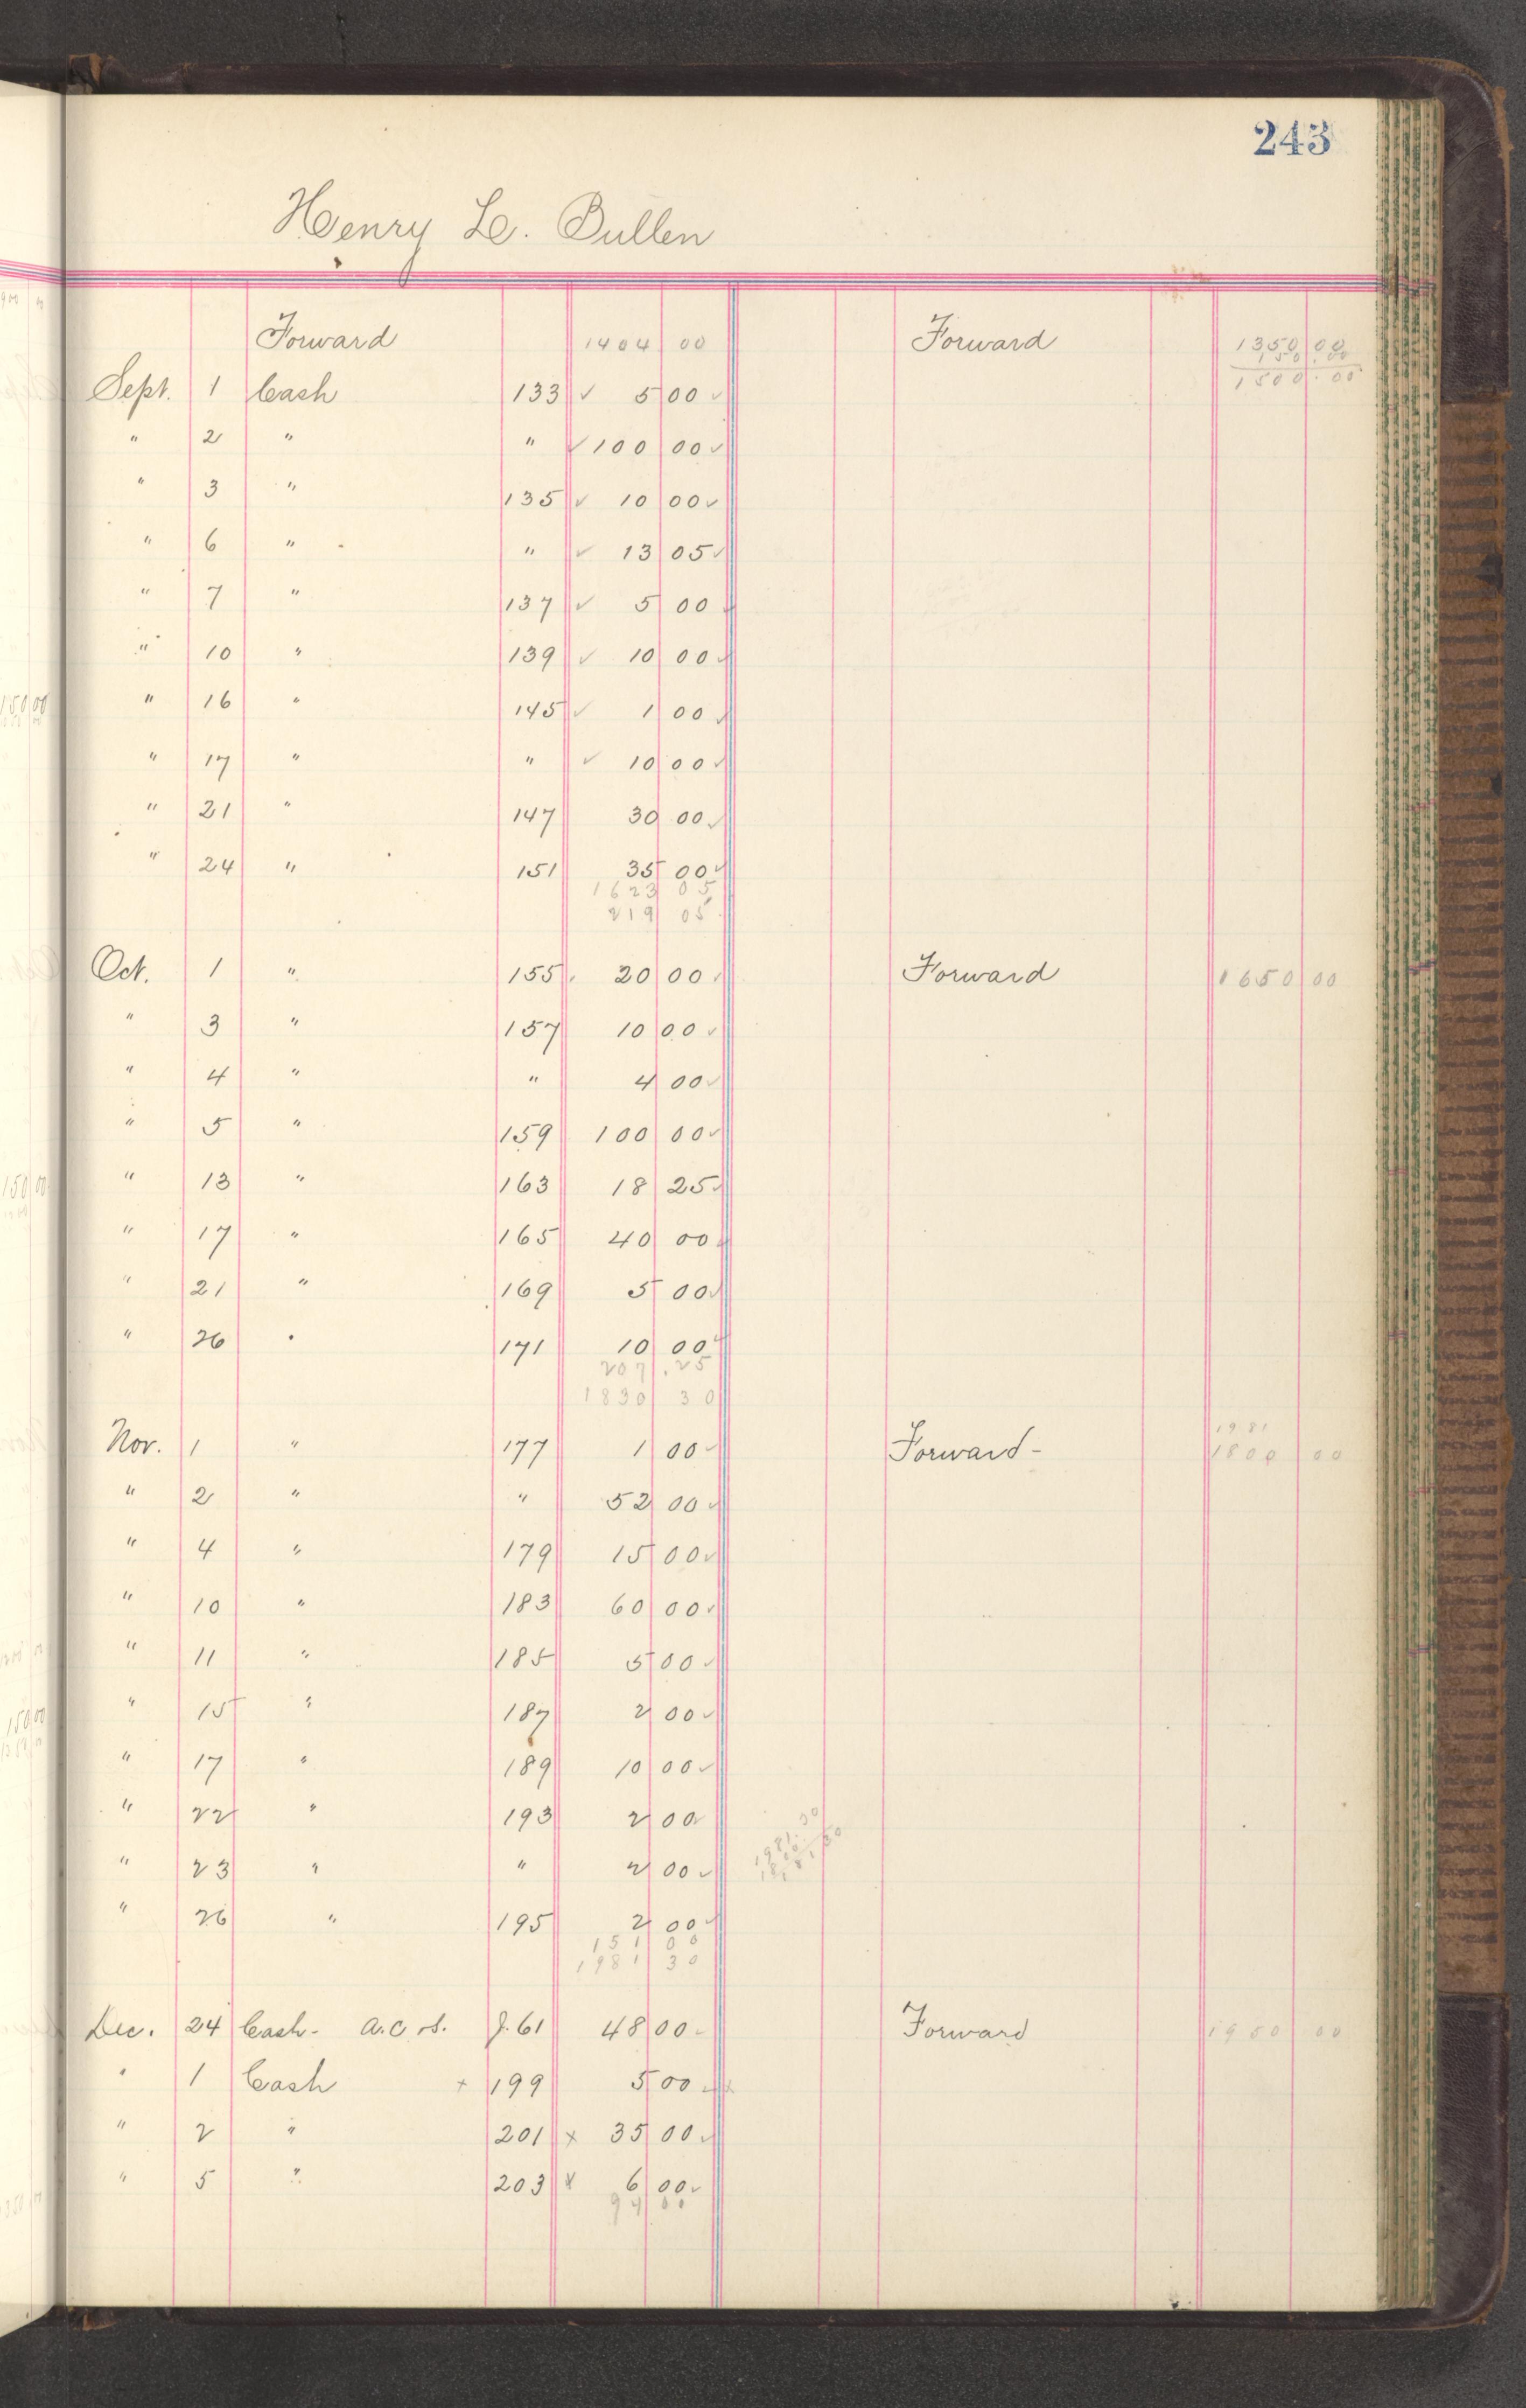 243
Henry L. Bullen
Forward 1404 00 Forward 1350 00
150.00
1500.00
Sept. 1 Cash 133 ✓ 5 00 ✓
" 2 " " ✓ 100 00 ✓
" 3 " 135 ✓ 10 00 ✓
" 6 " " ✓ 13 05 ✓
" 7 " 137 ✓ 5 00 ✓
" 10 " 139 ✓ 10 00 ✓
" 16 " 145 ✓ 1 00 ✓
" 17 " " ✓ 10 00 ✓
" 21 " 147 30 00 ✓
" 24 " 151 35 00 ✓
1623 05
219 05
Oct. 1 " 155 20 00 Forward 1650 00
" 3 " 157 10 00 ✓
" 4 " " 4 00 ✓
" 5 " 159 100 00 ✓
" 13 " 163 18 25 ✓
" 17 " 165 40 00 ✓
" 21 " 169 5 00 ✓
" 26 " 171 10 00 ✓
207.25
1830 30
1981
Nov. 1 " 177 1 00 ✓ Forward - 1800 00
" 2 " " 52 00 ✓
" 4 " 179 15 00 ✓
" 10 " 183 60 00 ✓
" 11 " 185 5 00 ✓
" 15 " 187 2 00 ✓
" 17 " 189 10 00 ✓
" 22 " 193 2 00
" 23 " " 2 00 ✓
" 26 " 195 2 00 ✓
151 00
1981 30
Dec. 24 Cash - a.c s. J. 61 48 00 ✓ Forward 1950 00
" 1 Cash x 199 5 00 ✓ x
" 2 " 201 x 35 00 ✓
" 5 " 203 x 6 00 ✓
94 00